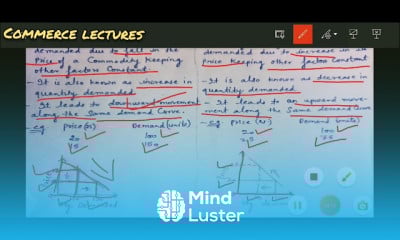 COMMERCE LECTURES
demanded due to fall in the
Price of a Commodity keeping
other factors Constant.
- It is also known as increase in
quantity demanded
- It leads to downward movement
along the Same demand Curve.
- eg Price (Rs) Demand (units)
20 100
15 150
demanded due to increase in
Price keeping other factor Constant
- It is also known as decrease in
quantity demanded
- It leads to an upward move-
ment along the Same demand Curve
- eg. Price (Rs.) Demand (units)
20 100
25 75
Mind
Luster